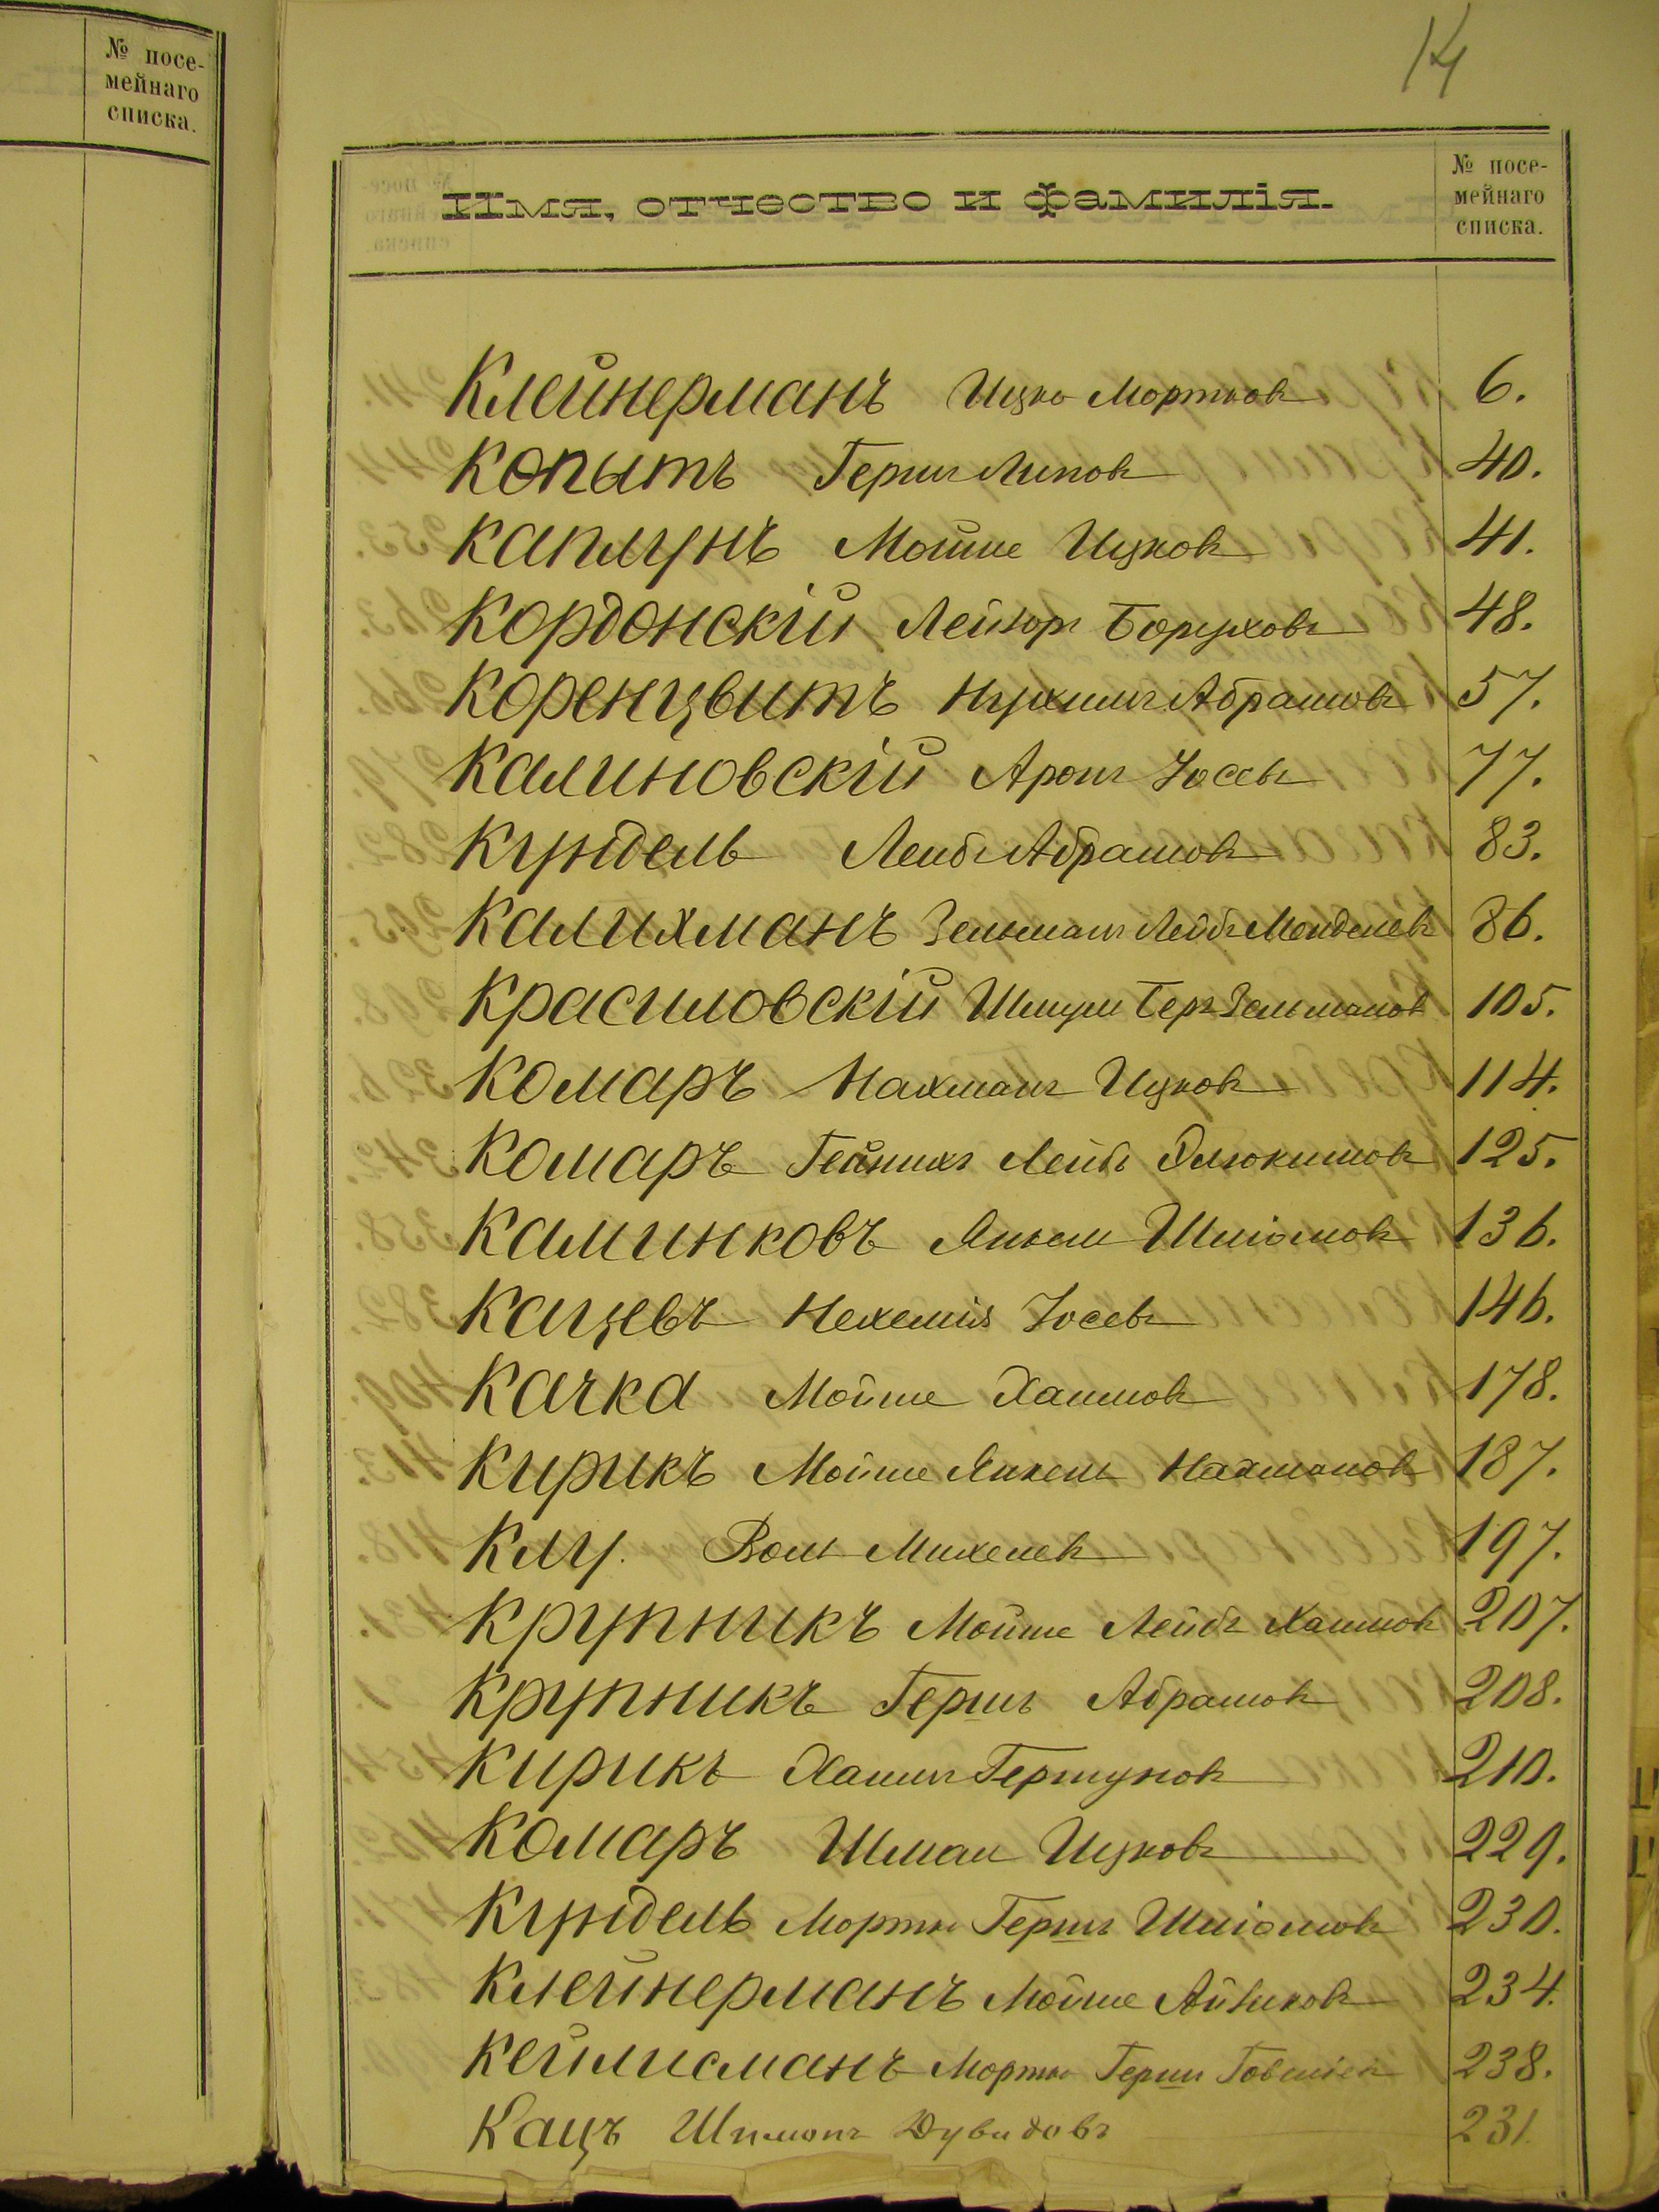 № посе-
мейнаго
списка.
14
Имя, отчество и фамилія.
№ посе-
мейнаго
списка.
Клейнерманъ Ицко Мортковъ 6.
Копытъ Гершъ Липовъ 40.
Каплунъ Мойше Ицковъ 41.
Кордонскій Лейзоръ Боруховъ 48.
Коренцвитъ Нухимъ Абрамовъ 57.
Калиновскій Аронъ Іоссевъ 77.
Кундель Лейбъ Абрамовъ 83.
Калихманъ Зельманъ Лейбъ Менделевъ 86.
Красиловскій Шмуль Беръ Зельмановъ 105.
Комаръ Нахманъ Ицковъ 114.
Комаръ Гейнихъ Лейбъ 125.
Калинковъ Янкель Шліомовъ 136.
Кацевъ Нехемія Іосевъ 146.
Качка Мойше Хаимовъ 178.
Кирикъ Мойше Янкель Нахмановъ 187.
Клу. Волъ Михелевъ 197.
Крупникъ Мойше Лейбъ Хаимовъ 207.
Крупникъ Гершъ Абрамовъ 208.
Кирикъ Хаимъ Гершуновъ 210.
Комаръ Шмаи Ицковъ 229.
Кундель Мортко Гершъ Шліомовъ 230.
Клейнерманъ Мойше Айзиковъ 234.
Кейлисманъ Мортко Гершъ 238.
Кацъ Шимонъ Дувидовъ 231